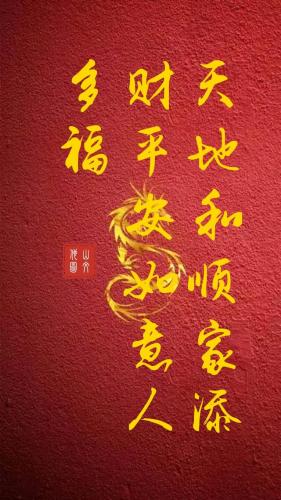 天地和顺家添
财平安如意人
多福